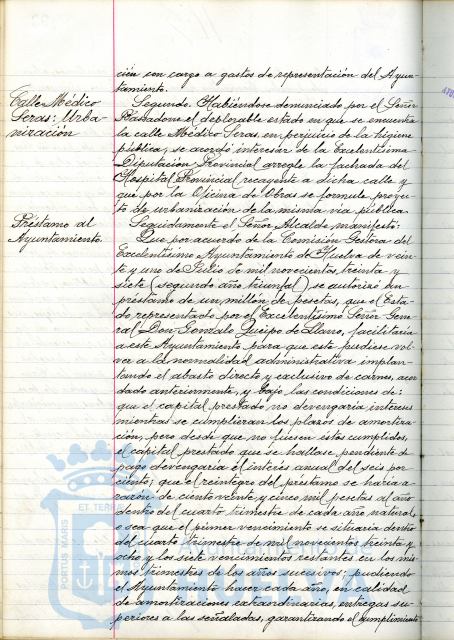 ción con cargo a gastos de representación del Ayun-
tamiento.
Calle Médico
Seras: Urba-
nización
Segundo. Habiéndose denunciado por el Señor
Rabadone el deplorable estado en que se encuentra
la calle Médico Seras, en perjuicio de la higiene
pública, se acordó interesar de la Excelentísima
Diputación Provincial arregle la fachada del
Hospital Provincial recayente a dicha calle y
que por la Oficina de Obras se formule proyec-
to de urbanización de la misma vía pública.
Préstamo al
Ayuntamiento.
Seguidamente el Señor Alcalde, manifestó:
Que por acuerdo de la Comisión Gestora del
Excelentísimo Ayuntamiento de Huelva de vein-
te y uno de Julio de mil novecientos treinta y
siete (segundo año triunfal) se autorizó un
préstamo de un millón de pesetas, que el Esta-
do representado por el Excelentísimo Señor Gene-
ral Don Gonzalo Queipo de Llano, facilitaría
a este Ayuntamiento para que este pudiese vol-
ver a la normalidad administrativa implan-
tando el abasto directo y exclusivo de carnes, acor-
dado anteriormente, y bajo las condiciones de:
que el capital prestado no devengaría intereses
mientras se cumplieran los plazos de amortiza-
ción, pero desde que no fuesen éstos cumplidos,
el capital prestado que se hallase pendiente de
pago devengaría el interés anual del seis por
ciento; que el reintegro del préstamo se haría a
razón de ciento veinte y cinco mil pesetas al año
dentro del cuarto trimestre de cada año natural,
o sea que el primer vencimiento se situaría dentro
del cuarto trimestre de mil novecientos treinta y
ocho y los siete vencimientos restantes en los mis-
mos trimestres de los años sucesivos; pudiendo
el Ayuntamiento hacer cada año, en calidad
de amortizaciones extraordinarias, entregas su-
periores a las señaladas, garantizando el cumplimiento
PORTUS MARIS
ET TERR